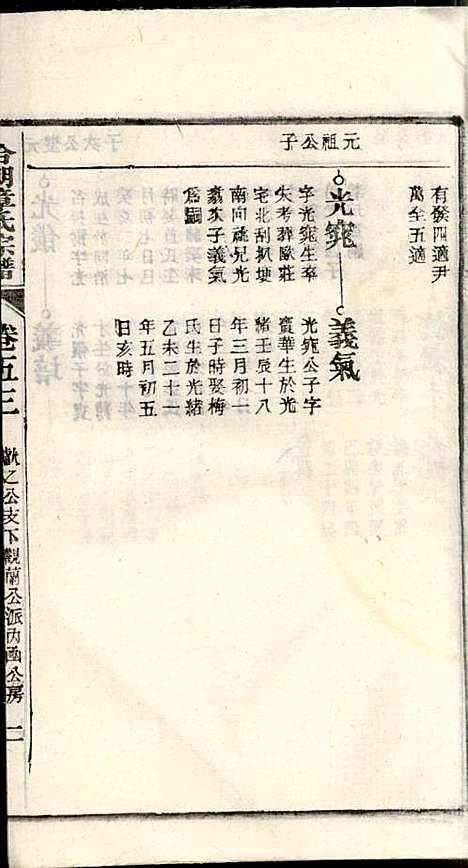 元祖公子
有發四適尹
萬全五適
光寵
字光寵生卒
失考葬陳莊
宅北刮扒埂
南向疏兄光
翥次子義氣
爲嗣
義氣
光寵公子字
寶華生於光
緒壬辰十八
年三月初一
日子時娶梅
氏生於光緒
乙未二十一
年五月初五
日亥時
章氏宗譜
卷五三
猷之公支下觀蘭公派丙函公房